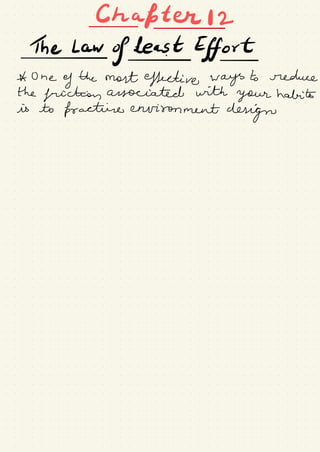 Chapter 12
The Law of Least Effort
* One of the most effective ways to reduce
the friction associated with your habits
is to practice environment design